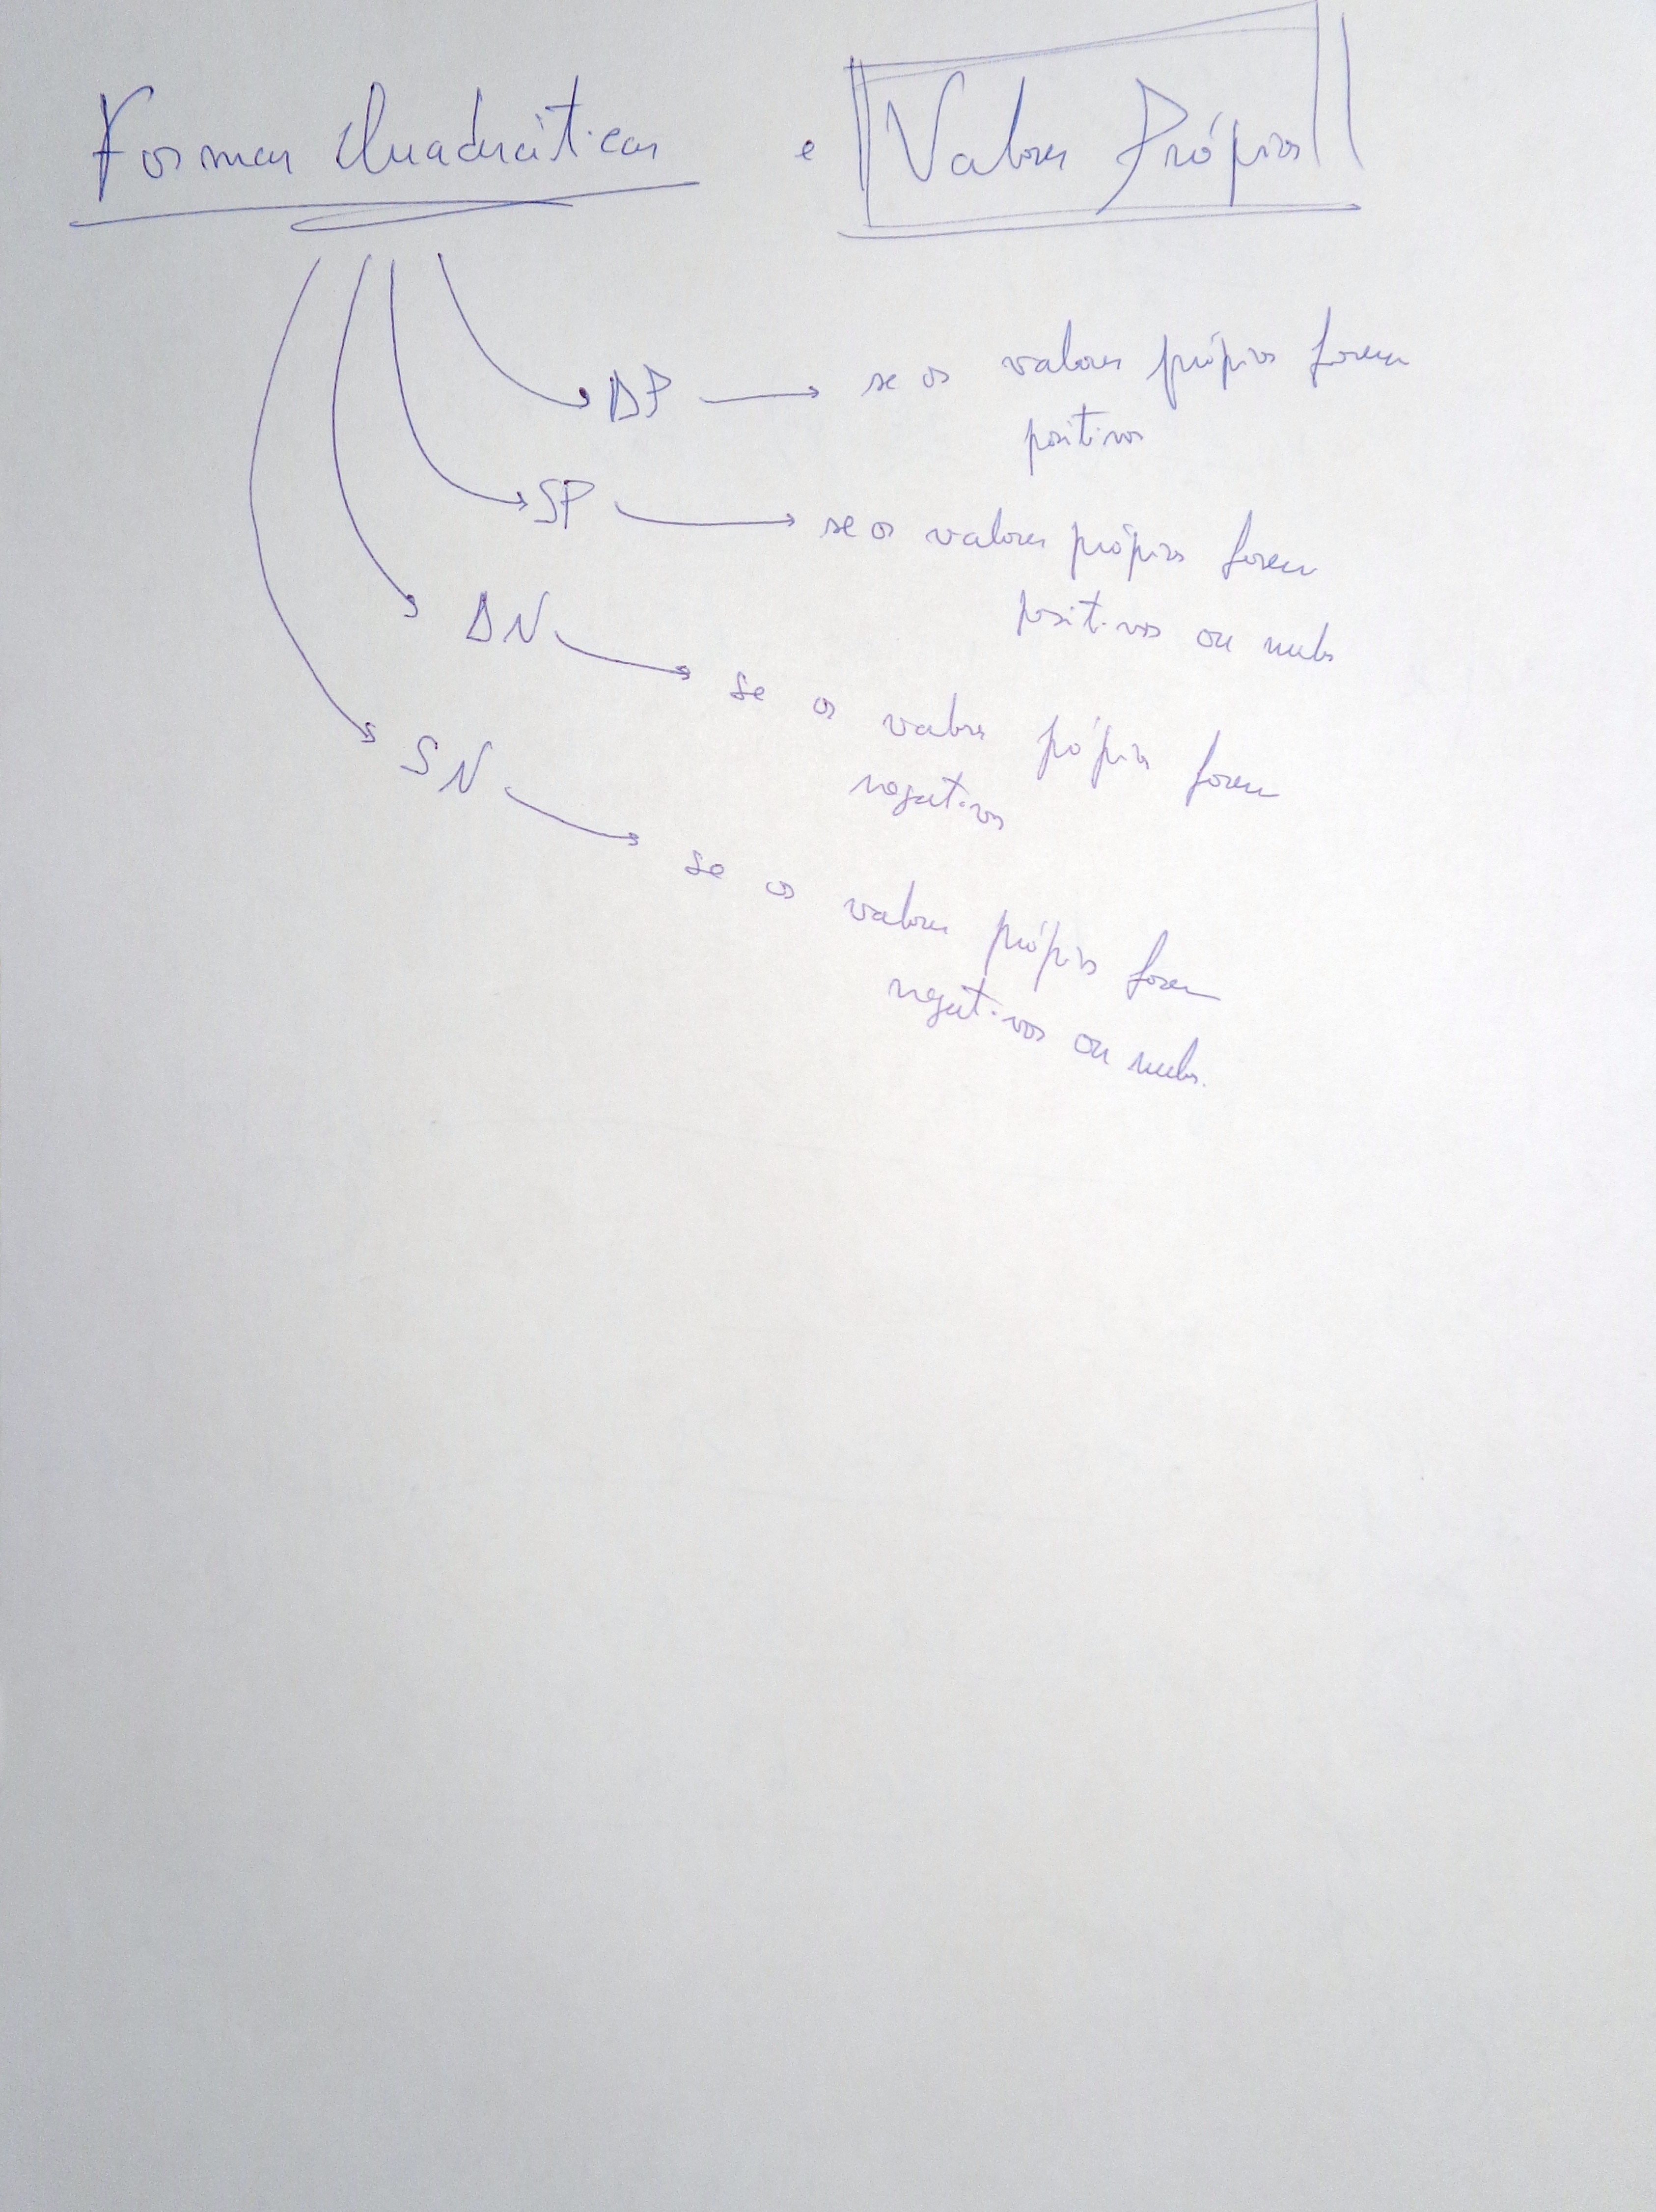 Formas Quadráticas e Valores Próprios
DP → se os valores próprios forem
positivos
SP → se os valores próprios forem
positivos ou nulos
DN → se os valores própios forem
negativos
SN → se os valores próprios forem
negativos ou nulos.